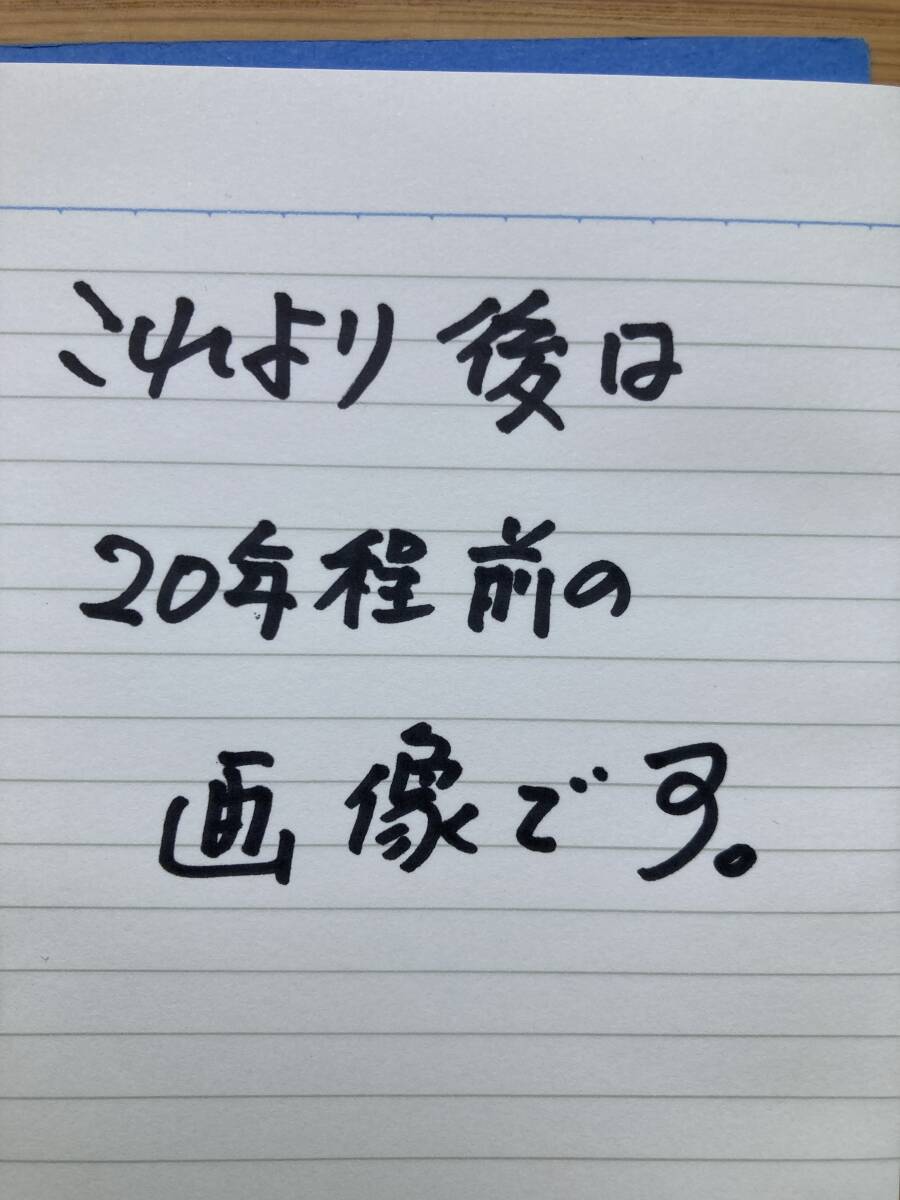 これより後は
20年程前の
画像です。